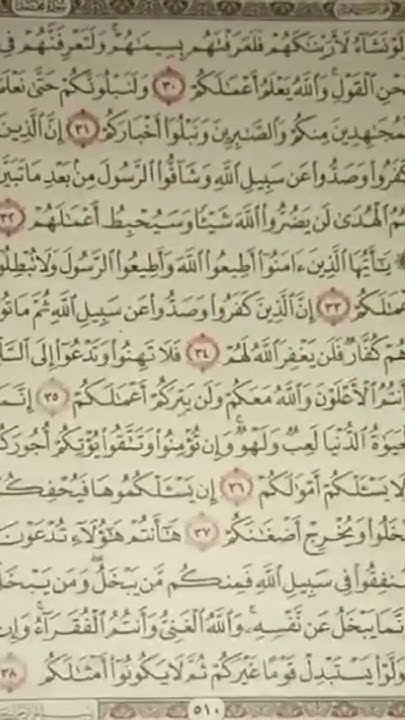 وَلَوْ نَشَآءُ لَأَرَيْنَٰكَهُمْ فَلَعَرَفْتَهُم بِسِيمَٰهُمْ ۚ وَلَتَعْرِفَنَّهُمْ فِى
لَحْنِ ٱلْقَوْلِ ۚ وَٱللَّهُ يَعْلَمُ أَعْمَٰلَكُمْ ٣٠ وَلَنَبْلُوَنَّكُمْ حَتَّىٰ نَعْلَمَ
ٱلْمُجَٰهِدِينَ مِنكُمْ وَٱلصَّٰبِرِينَ وَنَبْلُوَا۟ أَخْبَارَكُمْ ٣١ إِنَّ ٱلَّذِينَ
كَفَرُوا۟ وَصَدُّوا۟ عَن سَبِيلِ ٱللَّهِ وَشَآقُّوا۟ ٱلرَّسُولَ مِنۢ بَعْدِ مَا تَبَيَّنَ
لَهُمُ ٱلْهُدَىٰ لَن يَضُرُّوا۟ ٱللَّهَ شَيْـًٔا وَسَيُحْبِطُ أَعْمَٰلَهُمْ ٣٢
۞ يَٰٓأَيُّهَا ٱلَّذِينَ ءَامَنُوٓا۟ أَطِيعُوا۟ ٱللَّهَ وَأَطِيعُوا۟ ٱلرَّسُولَ وَلَا تُبْطِلُوٓا۟
أَعْمَٰلَكُمْ ٣٣ إِنَّ ٱلَّذِينَ كَفَرُوا۟ وَصَدُّوا۟ عَن سَبِيلِ ٱللَّهِ ثُمَّ مَاتُوا۟
وَهُمْ كُفَّارٌ فَلَن يَغْفِرَ ٱللَّهُ لَهُمْ ٣٤ فَلَا تَهِنُوا۟ وَتَدْعُوٓا۟ إِلَى ٱلسَّلْمِ
وَأَنتُمُ ٱلْأَعْلَوْنَ وَٱللَّهُ مَعَكُمْ وَلَن يَتِرَكُمْ أَعْمَٰلَكُمْ ٣٥ إِنَّمَا
ٱلْحَيَوٰةُ ٱلدُّنْيَا لَعِبٌ وَلَهْوٌ ۚ وَإِن تُؤْمِنُوا۟ وَتَتَّقُوا۟ يُؤْتِكُمْ أُجُورَكُمْ
وَلَا يَسْـَٔلْكُمْ أَمْوَٰلَكُمْ ٣٦ إِن يَسْـَٔلْكُمُوهَا فَيُحْفِكُمْ
تَبْخَلُوا۟ وَيُخْرِجْ أَضْغَٰنَكُمْ ٣٧ هَٰٓأَنتُمْ هَٰٓؤُلَآءِ تُدْعَوْنَ
لِتُنفِقُوا۟ فِى سَبِيلِ ٱللَّهِ فَمِنكُم مَّن يَبْخَلُ ۖ وَمَن يَبْخَلْ
فَإِنَّمَا يَبْخَلُ عَن نَّفْسِهِۦ ۚ وَٱللَّهُ ٱلْغَنِىُّ وَأَنتُمُ ٱلْفُقَرَآءُ ۚ وَإِن
تَتَوَلَّوْا۟ يَسْتَبْدِلْ قَوْمًا غَيْرَكُمْ ثُمَّ لَا يَكُونُوٓا۟ أَمْثَٰلَكُم ٣٨
٥١٠